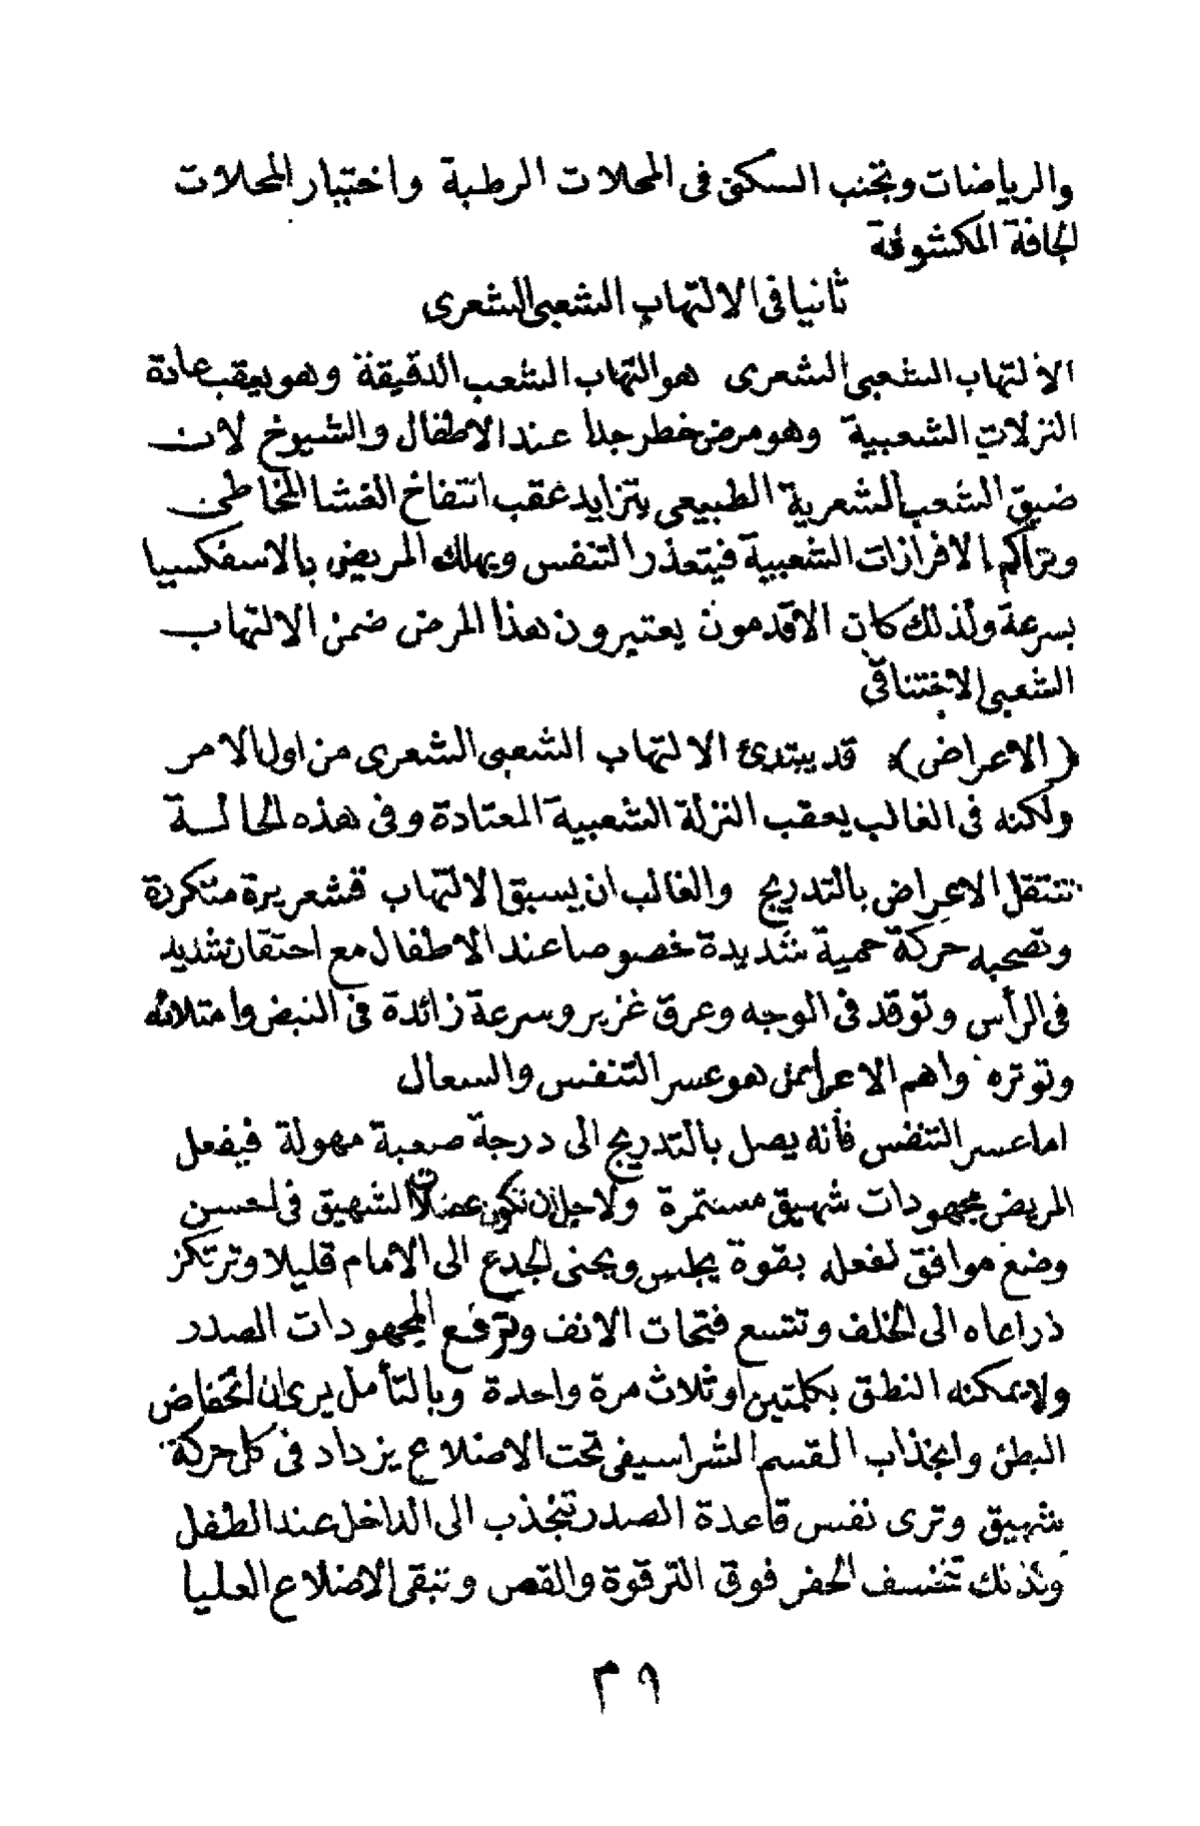 والرياضات وتجنب السكنى فى المحلات الرطبة واختيار المحلات
الجافة المكشوفة
ثانيا فى الالتهاب الشعبى الشعرى
الالتهاب الشعبى الشعرى هو التهاب الشعب الدقيقة وهو يعقب عادة
النزلات الشعبية وهو مرض خطر جدا عند الاطفال والشيوخ لان
ضيق الشعب الشعرية الطبيعى يتزايد عقب انتفاخ الغشا المخاطى
وتراكم الافرازات الشعبية فيتعذر التنفس ويهلك المريض بالاسفكسيا
بسرعة ولذلك كان الاقدمون يعتبرون هذا المرض ضمن الالتهاب
الشعبى الاختناقى
﴿الاعراض﴾ قد يبتدئ الالتهاب الشعبى الشعرى من اول الامر
ولكنه فى الغالب يعقب النزلة الشعبية المعتادة وفى هذه الحالة
تنتقل الاعراض بالتدريج والغالب ان يسبق الالتهاب قشعريرة متكررة
وتصحبه حركة حمية شديدة خصوصا عند الاطفال مع احتقان شديد
فى الرأس وتوقد فى الوجه وعرق غزير وسرعة زائدة فى النبض وامتلائه
وتوتره واهم الاعراض هو عسر التنفس والسعال
اما عسر التنفس فأنه يصل بالتدريج الى درجة صعبة مهولة فيفعل
المريض مجهودات شهيق مستمرة ولاجل ان تكون عضلات الشهيق فى احسن
وضع موافق لفعله بقوة يجلس ويحنى الجدع الى الامام قليلا وترتكز
ذراعاه الى الخلف وتتسع فتحات الانف وترفع المجهودات الصدر
ولا يمكنه النطق بكلمتين او ثلاث مرة واحدة وبالتأمل يرى ان انخفاض
البطن وانجذاب القسم الشراسيفى تحت الاضلاع يزداد فى كل حركة
شهيق وترى نفس قاعدة الصدر تنجذب الى الداخل عند الطفل
وكذلك تنخسف الحفر فوق الترقوة والقص وتبقى الاضلاع العليا
٣٩